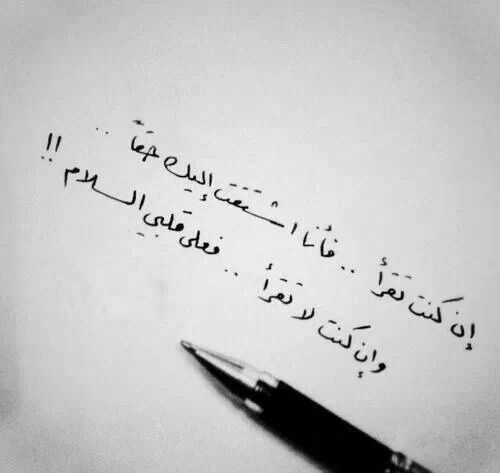 إن كنت تقرأ .. فأنا اشتقت إليك حقاً ..
وإن كنت لا تقرأ .. فعلى قلبي السلام !!